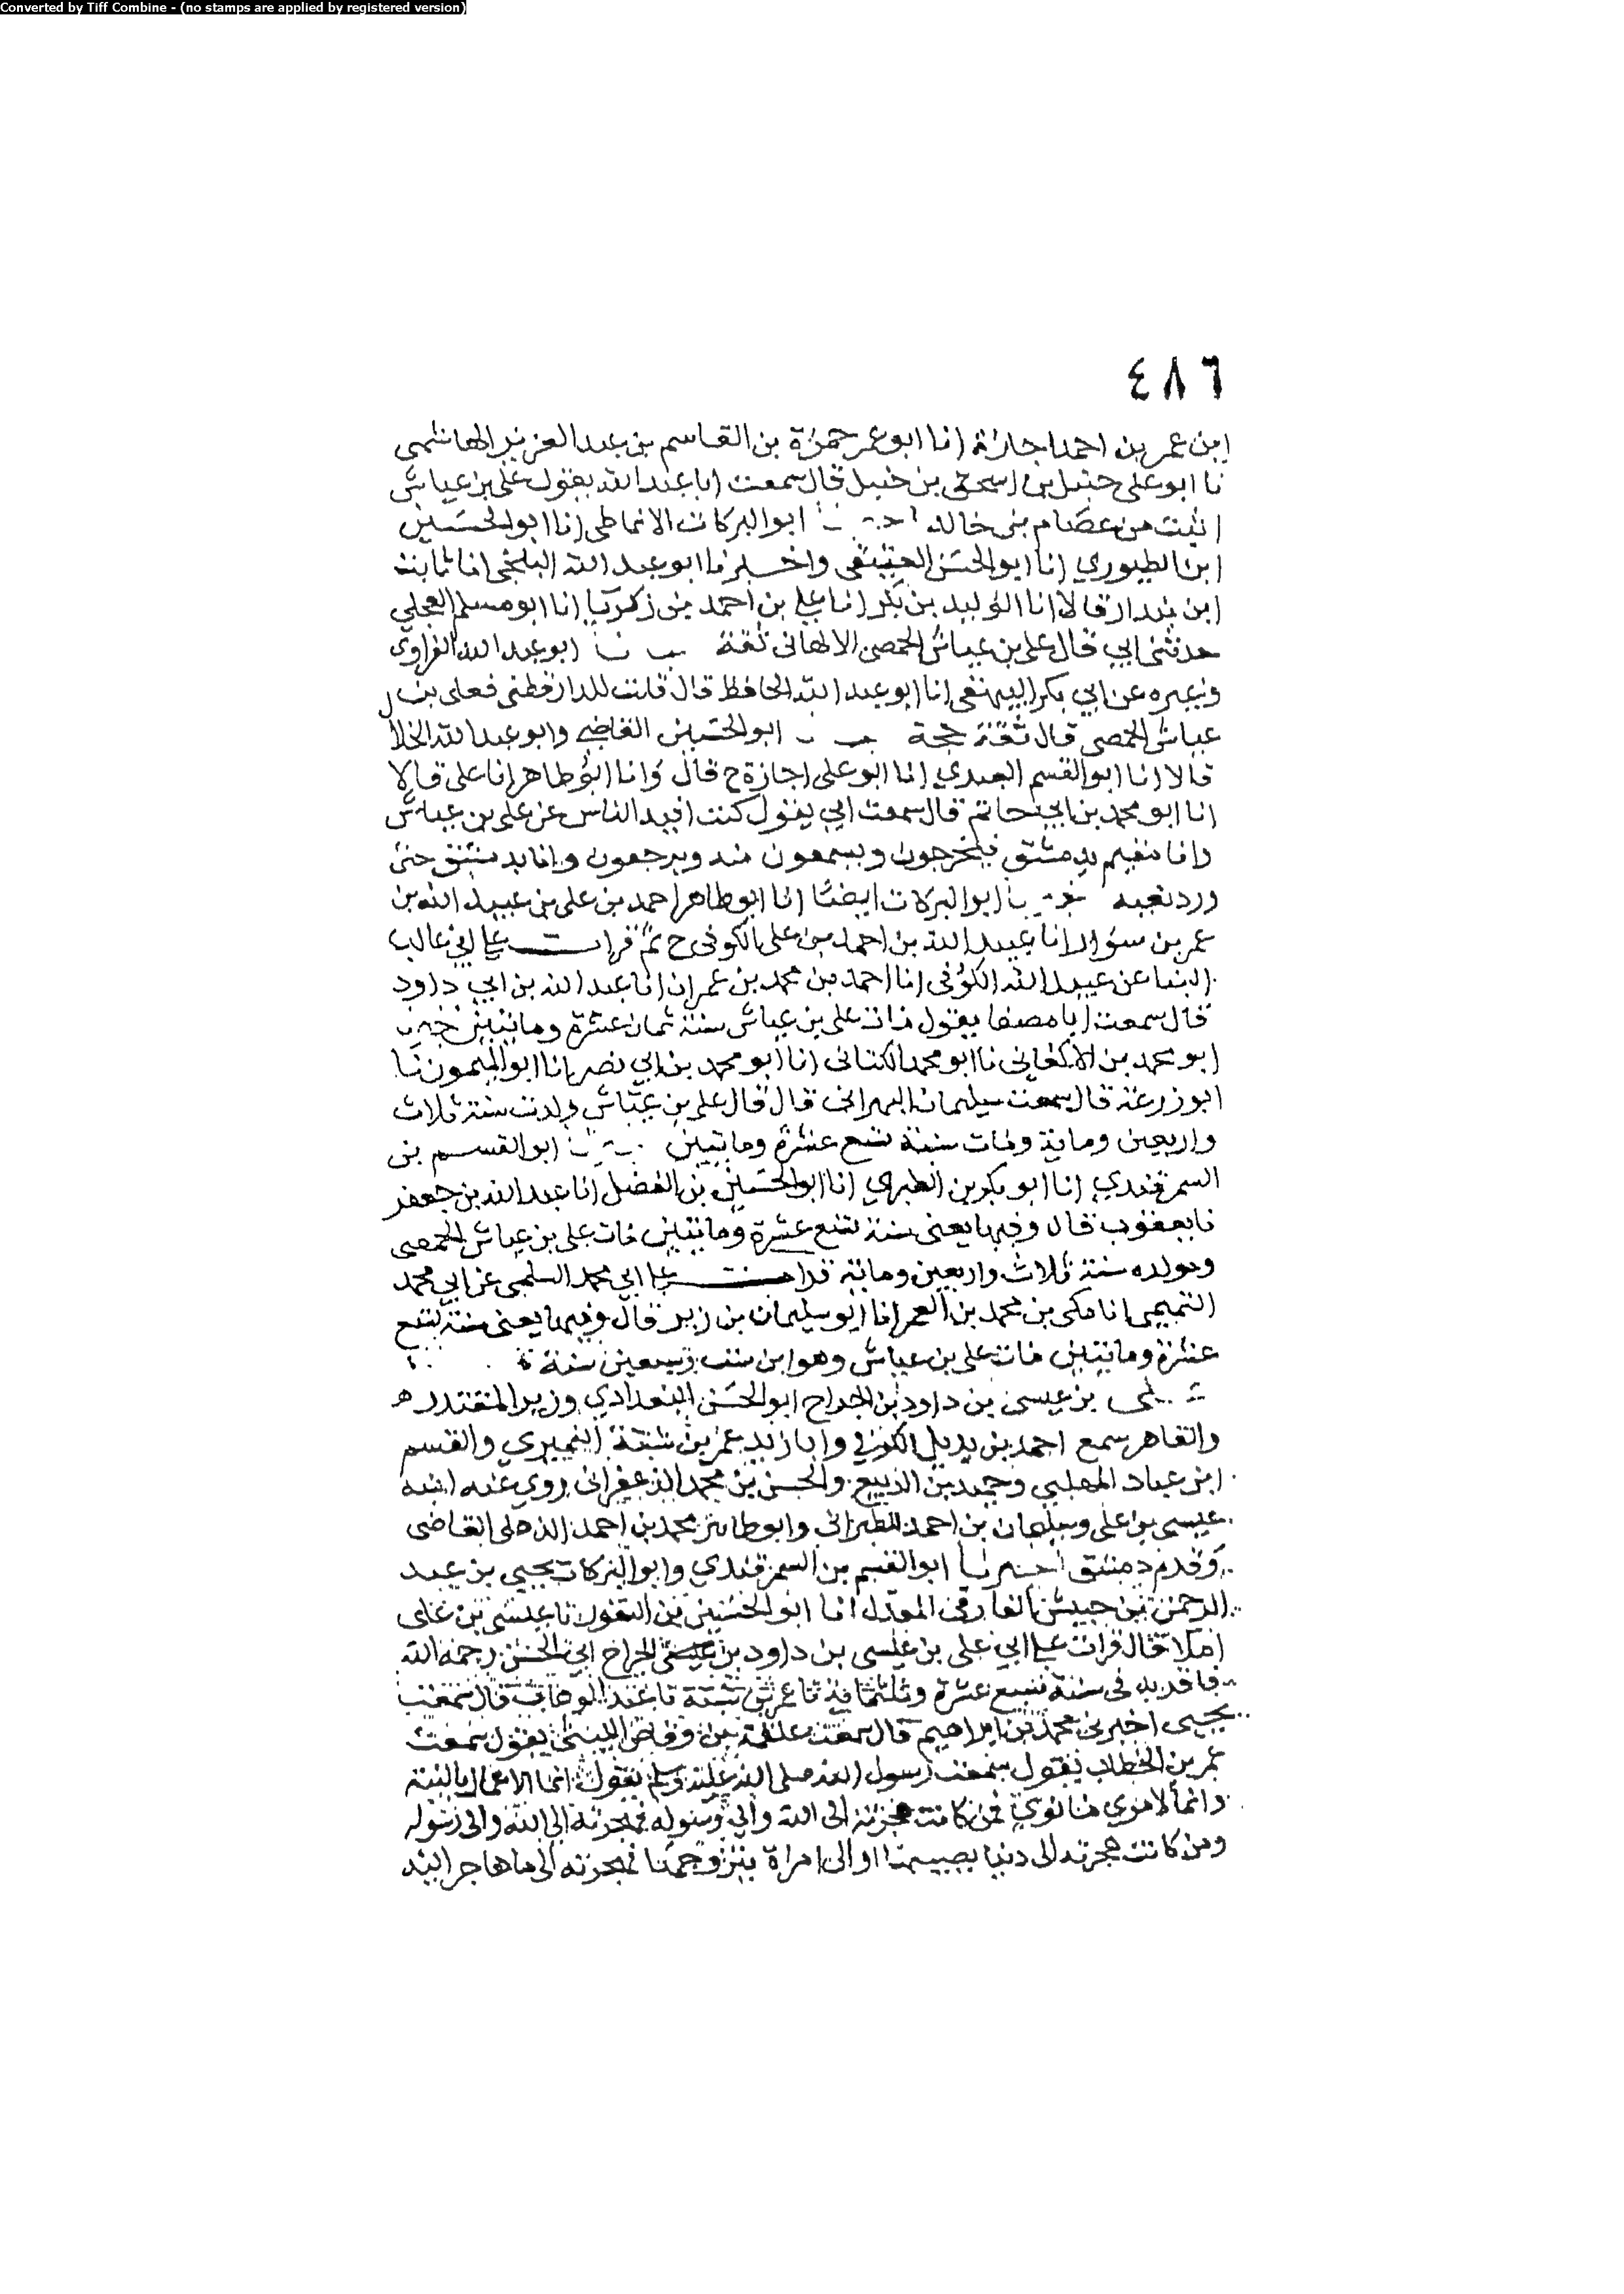 Converted by Tiff Combine - (no stamps are applied by registered version)
٤٨٦
ابن عمر بن احمد اجازة انا ابو عمر حمزة بن القاسم بن عبد العزيز الهاشمي
نا ابو علي حنبل بن اسحق بن حنبل قال سمعت ابا عبد الله يقول علي بن عياش
اثبت من عصام بن خالد ابو البركات الانماطي انا ابو الحسين
ابن الطيوري انا ابو الحسن العتيقي واخبرنا ابو عبد الله البلخي انا ثابت
ابن بندار قالا انا الوليد بن بكر انا علي بن احمد بن زكريا انا ابو مسلم العجلي
حدثني ابي قال علي بن عياش الحمصي الالهاني ثقة ابو عبد الله الفراوي
وغيره عن ابي بكر البيهقي انا ابو عبد الله الحافظ قال قلت للدارقطني فعلي بن
عياش الحمصي قال ثقة حجة ابو الحسين القاضي وابو عبد الله الخلال
قالا انا ابو القسم العبدي انا ابو علي اجازة ح قال وانا ابو طاهر انا علي قالا
انا ابو محمد بن ابي حاتم قال سمعت ابي يقول كنت افيد الناس عن علي بن عياش
وانا مقيم بدمشق فيخرجون ويسمعون منه ويرجعون وانا بدمشق حتى
ورد نعيه ابو البركات ايضا انا ابو طاهر احمد بن علي بن عبيد الله بن
عمر بن سوار انا عبيد الله بن احمد بن علي الكوفي ح ثم قرات على ابي غالب
البنا عن عبيد الله الكوفي انا احمد بن محمد بن عمران انا عبد الله بن ابي داود
قال سمعت ابا مصفا يقول مات علي بن عياش سنة ثمان عشرة ومائتين
ابو محمد بن الاكفاني نا ابو محمد الكتاني انا ابو محمد بن ابي نصر انا ابو الميمون نا
ابو زرعة قال سمعت سليمان البهراني قال قال علي بن عياش ولدت سنة ثلاث
واربعين ومائة ومات سنة تسع عشرة ومائتين ابو القسم بن
السمرقندي انا ابو بكر بن الطبري انا ابو الحسين بن الفضل انا عبد الله بن جعفر
نا يعقوب قال وفيها يعني سنة تسع عشرة ومائتين مات علي بن عياش الحمصي
ومولده سنة ثلاث واربعين ومائة قرات على ابي محمد السلمي عن ابي محمد
التميمي انا مكي بن محمد بن الغمر انا ابو سليمان بن زبر قال وفيها يعني سنة تسع
عشرة ومائتين مات علي بن عياش وهو ابن ست وسبعين سنة
علي بن عيسى بن داود بن الجراح ابو الحسن البغدادي وزير المقتدر
والقاهر سمع احمد بن بديل الكوفي وابا زيد عمر بن شبة النميري والقسم
ابن عباد المهلبي وحميد بن الربيع والحسن بن محمد الزعفراني روى عنه ابنه
عيسى بن علي وسليمان بن احمد الطبراني وابو طاهر محمد بن احمد الذهلي القاضي
وقدم دمشق اخبرنا ابو القسم بن السمرقندي وابو البركات يحيى بن عبد
الرحمن بن حبيش الفارقي المعدل انا ابو الحسين بن النقور نا عيسى بن علي
املا قال قرات على ابي علي بن عيسى بن داود بن عيسى الجراح ابي الحسن رحمه الله
فاقر به في سنة تسع عشرة وثلثمائة نا عمر بن شبة نا عبد الوهاب قال سمعت
يحيى اخبرني محمد بن ابراهيم قال سمعت علقمة بن وقاص الليثي يقول سمعت
عمر بن الخطاب يقول سمعت رسول الله صلى الله عليه وسلم يقول انما الاعمال بالنية
وانما لامرئ ما نوى فمن كانت هجرته الى الله والى رسوله فهجرته الى الله والى رسوله
ومن كانت هجرته الى دنيا يصيبها او الى امراة يتزوجها فهجرته الى ما هاجر اليه